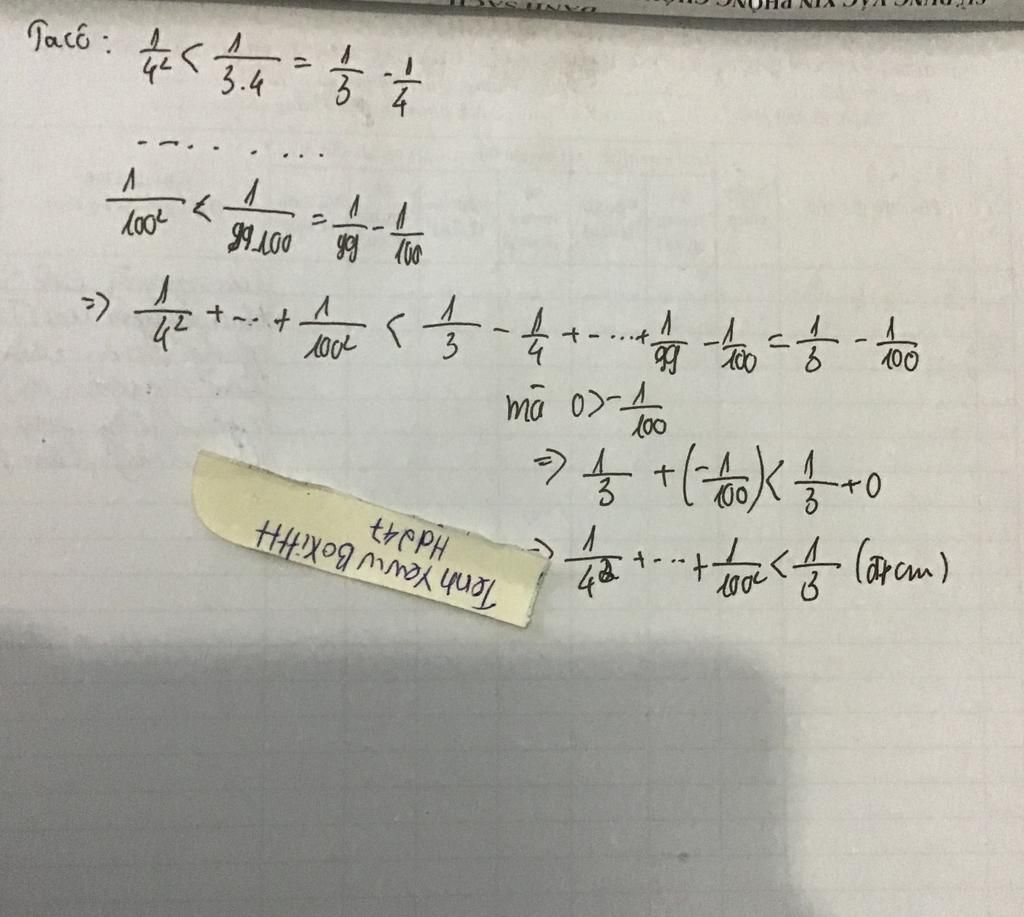 Ta có: 1/4² < 1/3.4 = 1/3 - 1/4
--.. . ...
1/100² < 1/99.100 = 1/99 - 1/100
=> 1/4² + ... + 1/100² < 1/3 - 1/4 + ... + 1/99 - 1/100 = 1/3 - 1/100
mà 0 > -1/100
=> 1/3 + (-1/100) < 1/3 + 0
=> 1/4² + ... + 1/100² < 1/3 (đpcm)
Hd247